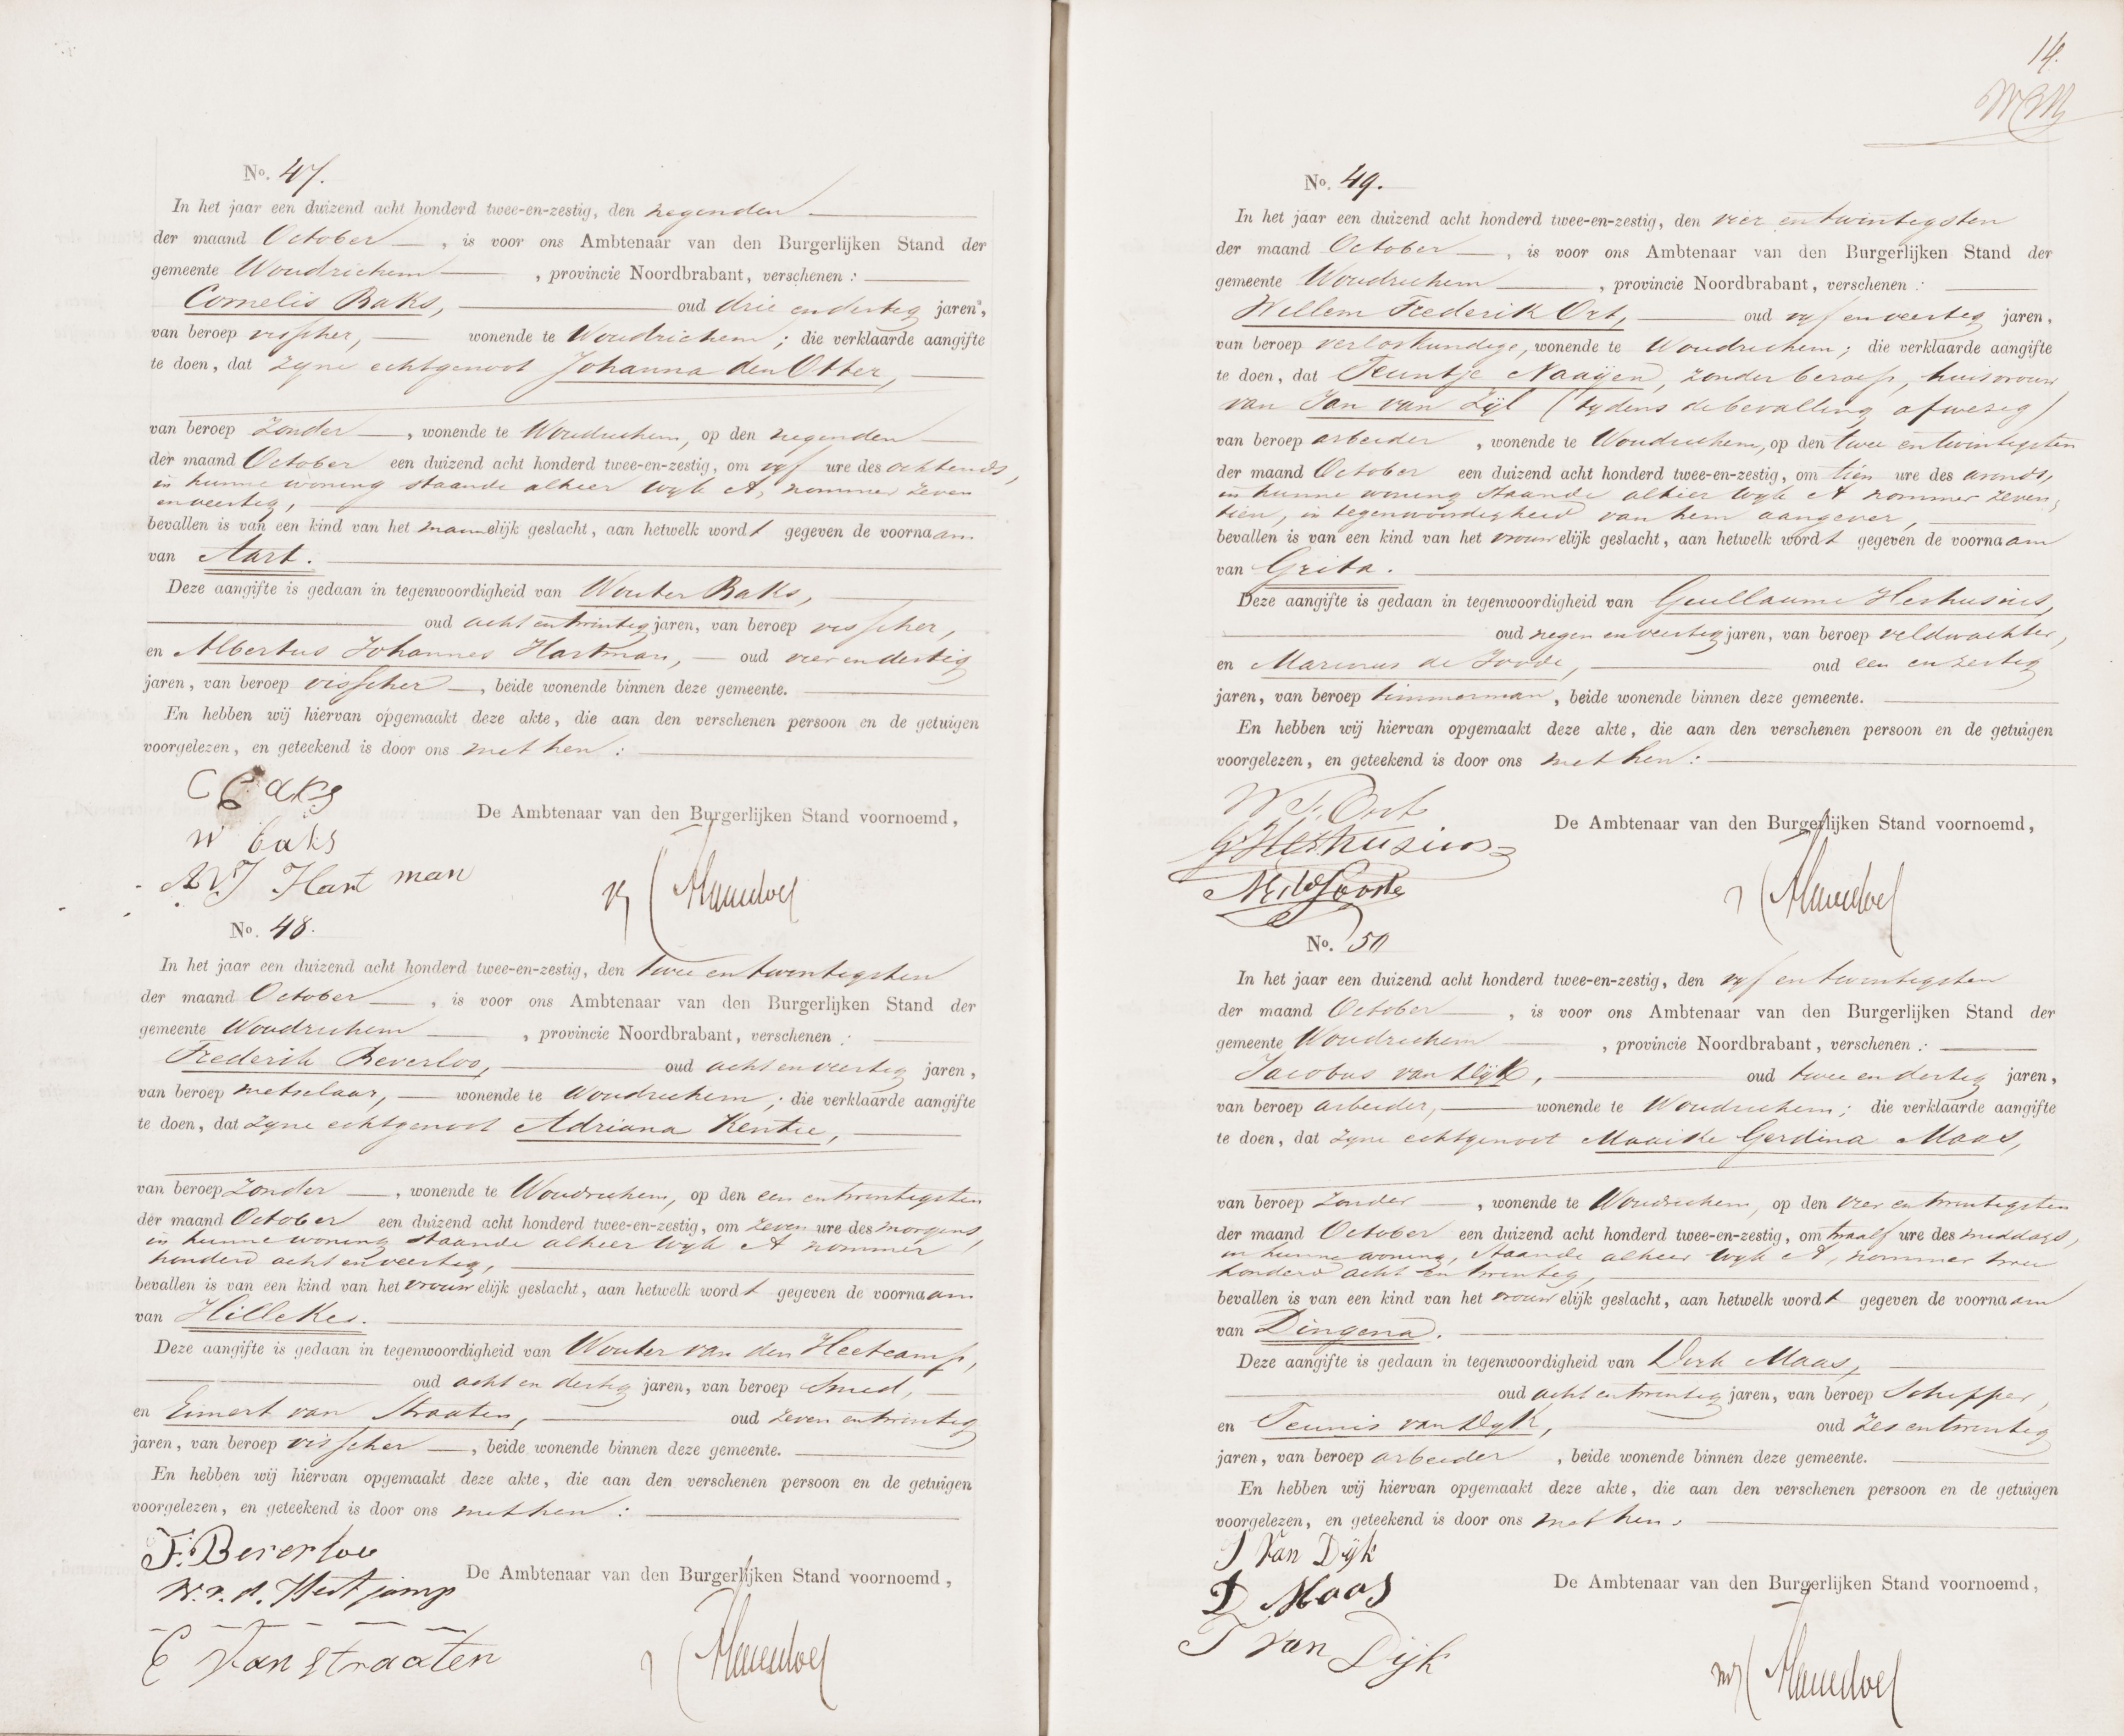 No. 47.
In het jaar een duizend acht honderd twee-en-zestig, den negenden
der maand October, is voor ons Ambtenaar van den Burgerlijken Stand der
gemeente Woudrichem, provincie Noordbrabant, verschenen:
Cornelis Baks, oud drie en dertig jaren,
van beroep visscher, wonende te Woudrichem; die verklaarde aangifte
te doen, dat zyne echtgenoot Johanna den Otter,
van beroep zonder, wonende te Woudrichem, op den negenden
der maand October een duizend acht honderd twee-en-zestig, om vyf ure des ochtends,
in hunne woning staande alhier wyk A, nommer zeven
en veertig,
bevallen is van een kind van het mannelijk geslacht, aan hetwelk wordt gegeven de voornaam
van Aart.
Deze aangifte is gedaan in tegenwoordigheid van Wouter Baks,
oud acht en twintig jaren, van beroep visscher,
en Albertus Johannes Hartman, oud vier en dertig
jaren, van beroep visscher, beide wonende binnen deze gemeente.
En hebben wij hiervan opgemaakt deze akte, die aan den verschenen persoon en de getuigen
voorgelezen, en geteekend is door ons met hen:
C Baks
De Ambtenaar van den Burgerlijken Stand voornoemd,
W baks
Hartman
No. 48.
In het jaar een duizend acht honderd twee-en-zestig, den twee en twentigsten
der maand October, is voor ons Ambtenaar van den Burgerlijken Stand der
gemeente Woudrichem, provincie Noordbrabant, verschenen:
Frederik Beverloo, oud acht en veertig jaren,
van beroep metselaar, wonende te Woudrichem; die verklaarde aangifte
te doen, dat zyne echtgenoot Adriana Kentie,
van beroep zonder, wonende te Woudrichem, op den een en twintigsten
der maand October een duizend acht honderd twee-en-zestig, om zeven ure des morgens,
in hunne woning staande alhier wyk A nommer
honderd acht en veertig,
bevallen is van een kind van het vrouwelijk geslacht, aan hetwelk wordt gegeven de voornaam
van Hillekes.
Deze aangifte is gedaan in tegenwoordigheid van Wouter van den Heetcamp,
oud acht en dertig jaren, van beroep Smed,
en Eimert van Straaten, oud zeven en twintig
jaren, van beroep visscher, beide wonende binnen deze gemeente.
En hebben wij hiervan opgemaakt deze akte, die aan den verschenen persoon en de getuigen
voorgelezen, en geteekend is door ons met hen:
F. Beverloo
De Ambtenaar van den Burgerlijken Stand voornoemd,
W. v. d. Heetjamp
E Van straaten
14.
No. 49.
In het jaar een duizend acht honderd twee-en-zestig, den vier en twintigsten
der maand October, is voor ons Ambtenaar van den Burgerlijken Stand der
gemeente Woudrichem, provincie Noordbrabant, verschenen:
Willem Frederik Ort, oud vyf en veertig jaren,
van beroep verloskundige, wonende te Woudrichem; die verklaarde aangifte
te doen, dat Teuntje Naaijen, zonder beroep, huisvrouw
van Jan van Zijl (tydens de bevalling afwezig)
van beroep arbeider, wonende te Woudrichem, op den twee en twintigsten
der maand October een duizend acht honderd twee-en-zestig, om tien ure des avonds,
in hunne woning staande alhier wyk A nommer zeven-
tien, in tegenwoordigheid van hem aangever,
bevallen is van een kind van het vrouwelijk geslacht, aan hetwelk wordt gegeven de voornaam
van Grita.
Deze aangifte is gedaan in tegenwoordigheid van Guillaume Heshusius,
oud negen en veertig jaren, van beroep veldwachter,
en Marinus de Joode, oud een en zestig
jaren, van beroep timmerman, beide wonende binnen deze gemeente.
En hebben wij hiervan opgemaakt deze akte, die aan den verschenen persoon en de getuigen
voorgelezen, en geteekend is door ons met hen:
W F. Ort
De Ambtenaar van den Burgerlijken Stand voornoemd,
G Heshusius
No. 50
In het jaar een duizend acht honderd twee-en-zestig, den vyf en twintigsten
der maand October, is voor ons Ambtenaar van den Burgerlijken Stand der
gemeente Woudrichem, provincie Noordbrabant, verschenen:
Jacobus van Dijk, oud twee en dertig jaren,
van beroep arbeider, wonende te Woudrichem; die verklaarde aangifte
te doen, dat zyne echtgenoot Maaike Gerdina Maas,
van beroep zonder, wonende te Woudrichem, op den vier en twintigsten
der maand October een duizend acht honderd twee-en-zestig, om twaalf ure des middags,
in hunne woning, staande alhier wyk A, nommer twee
honderd acht en twintig,
bevallen is van een kind van het vrouwelijk geslacht, aan hetwelk wordt gegeven de voornaam
van Dingena.
Deze aangifte is gedaan in tegenwoordigheid van Dirk Maas,
oud acht en twintig jaren, van beroep Schipper,
en Teunis van Dyk, oud zes en twintig
jaren, van beroep arbeider, beide wonende binnen deze gemeente.
En hebben wij hiervan opgemaakt deze akte, die aan den verschenen persoon en de getuigen
voorgelezen, en geteekend is door ons met hen.
J Van Dijk
De Ambtenaar van den Burgerlijken Stand voornoemd,
D Maas
T van Dijk